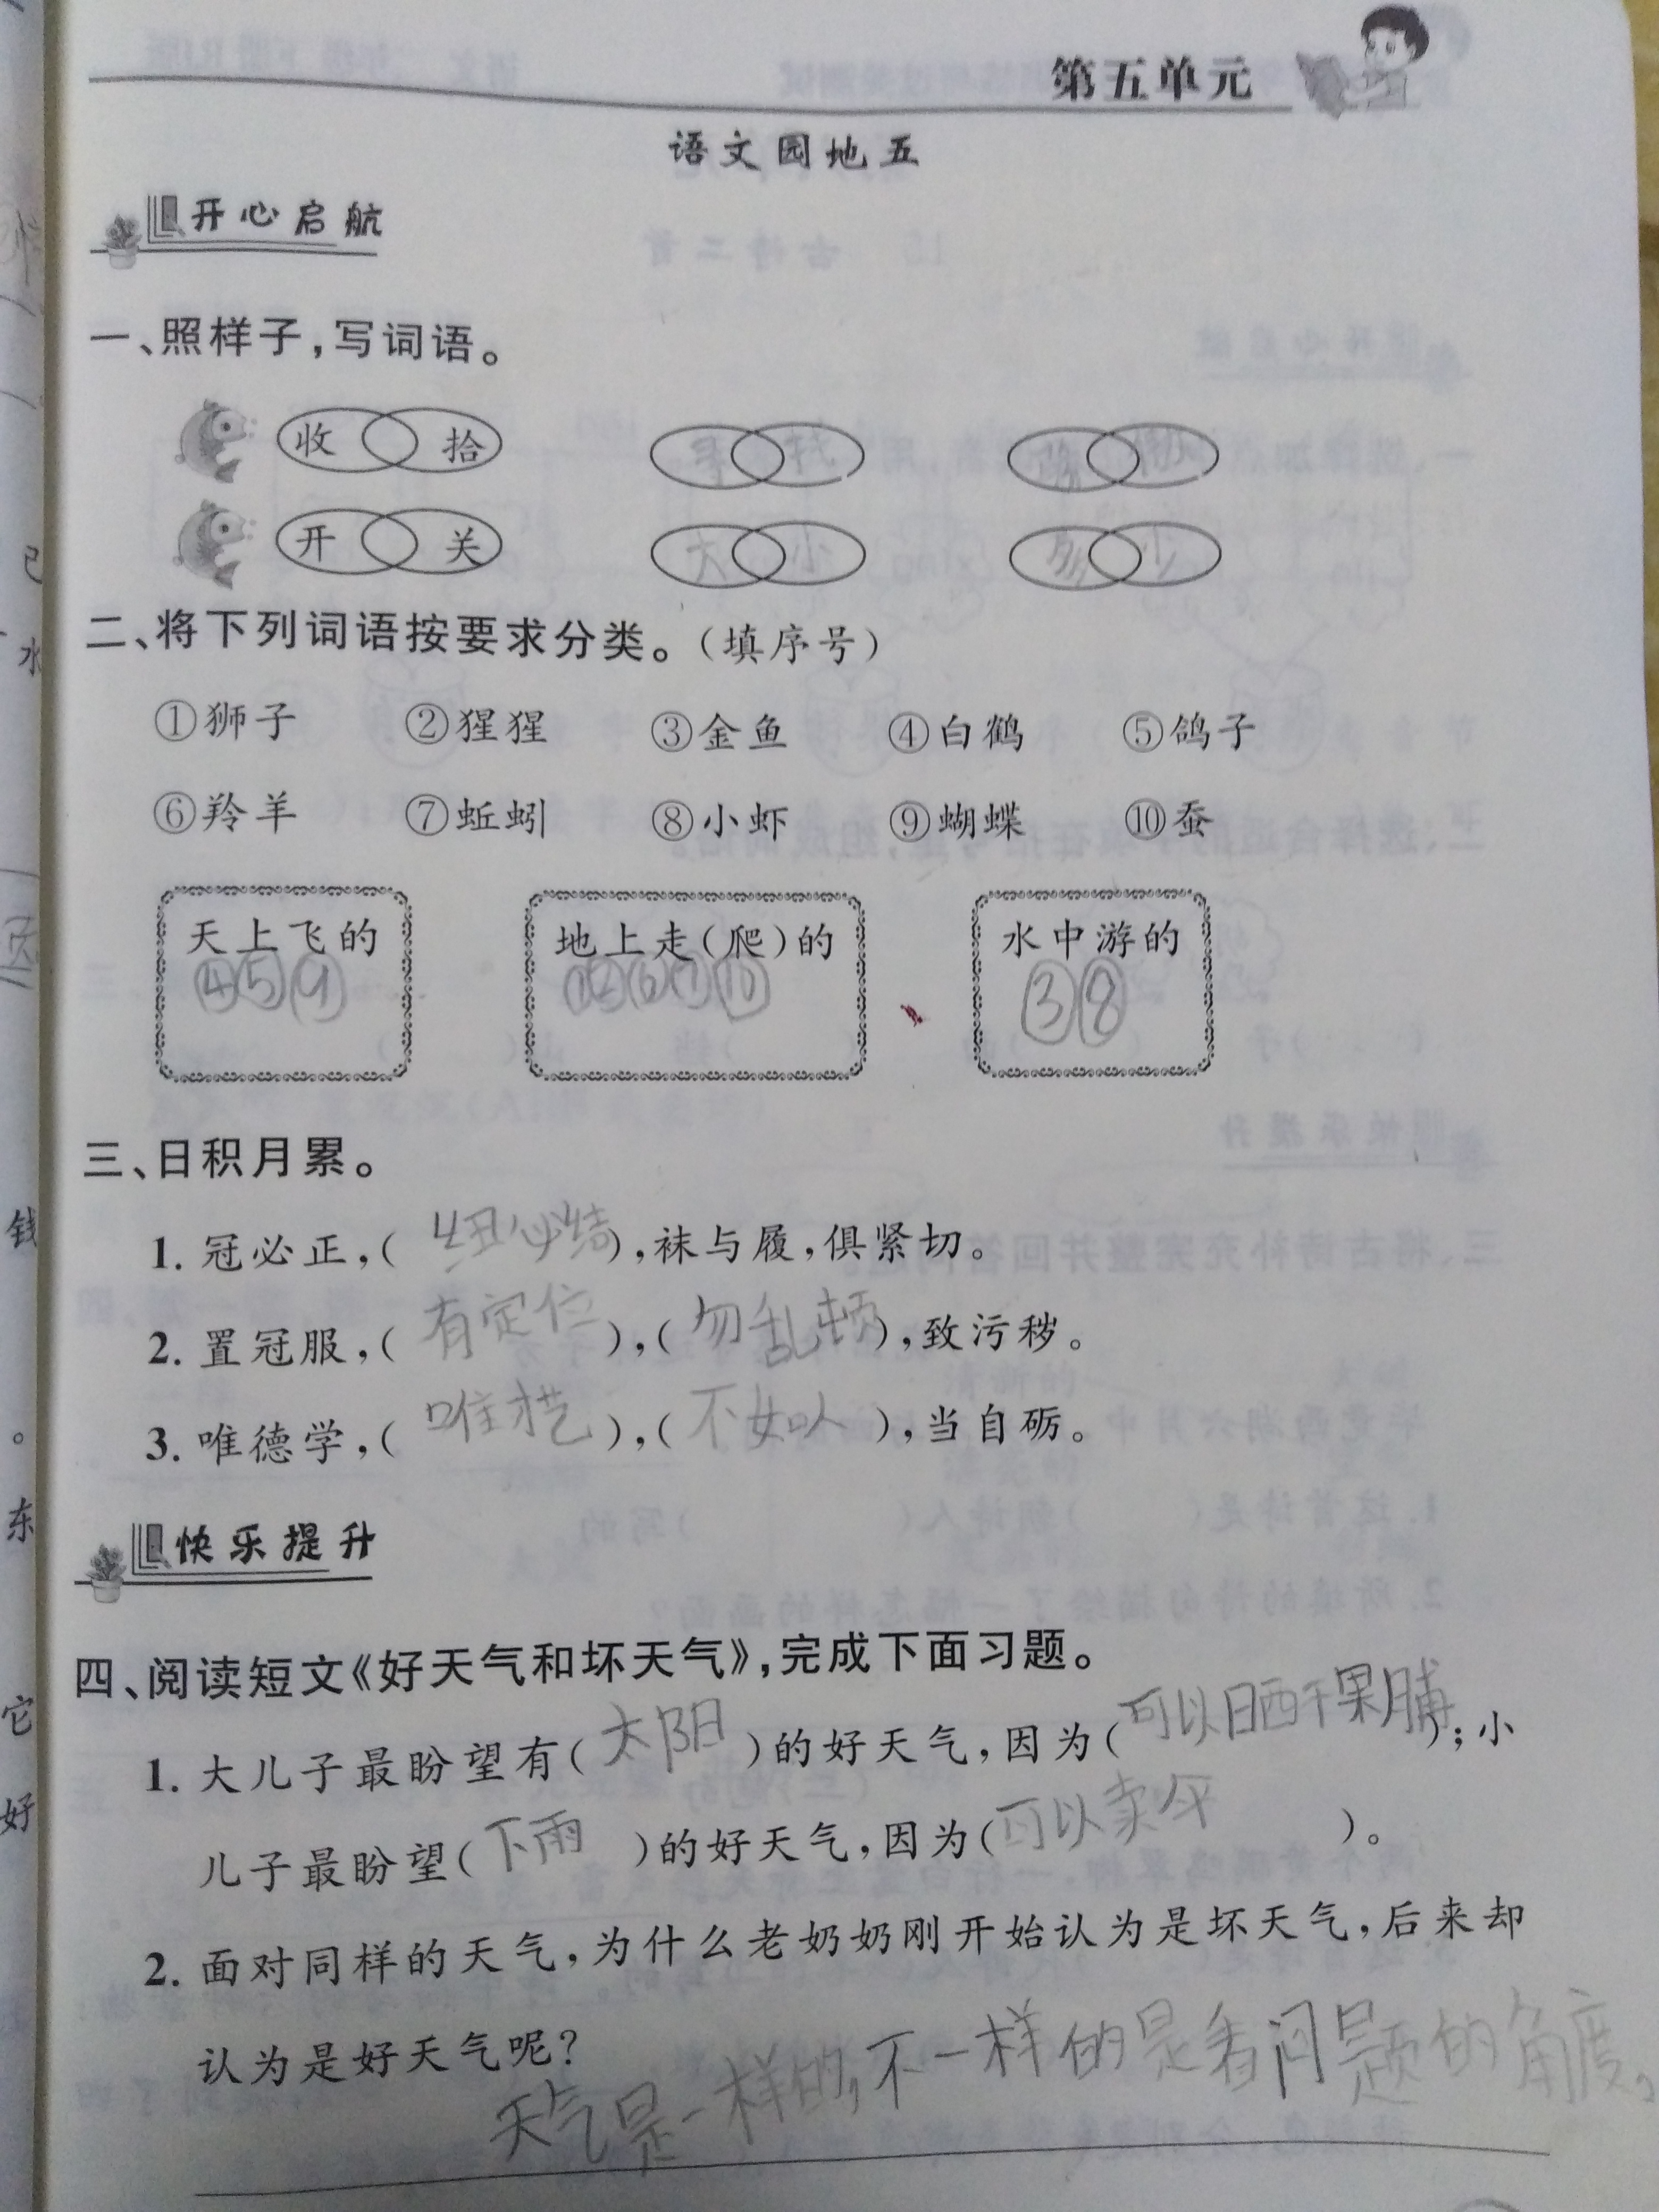 第五单元
语文园地五
开心启航
一、照样子,写词语。
收 拾 寻 找
开 关 大 小 多 少
二、将下列词语按要求分类。(填序号)
①狮子 ②猩猩 ③金鱼 ④白鹤 ⑤鸽子
⑥羚羊 ⑦蚯蚓 ⑧小虾 ⑨蝴蝶 ⑩蚕
天上飞的 地上走(爬)的 水中游的
④⑤⑨ ①②⑥⑦⑩ ③⑧
三、日积月累。
1. 冠必正,(纽必结),袜与履,俱紧切。
2. 置冠服,(有定位),(勿乱顿),致污秽。
3. 唯德学,(唯才艺),(不如人),当自砺。
快乐提升
四、阅读短文《好天气和坏天气》,完成下面习题。
1. 大儿子最盼望有(太阳)的好天气,因为(可以晒干果脯);小
儿子最盼望(下雨)的好天气,因为(可以卖伞)。
2. 面对同样的天气,为什么老奶奶刚开始认为是坏天气,后来却
认为是好天气呢?
天气是一样的,不一样的是看问题的角度。